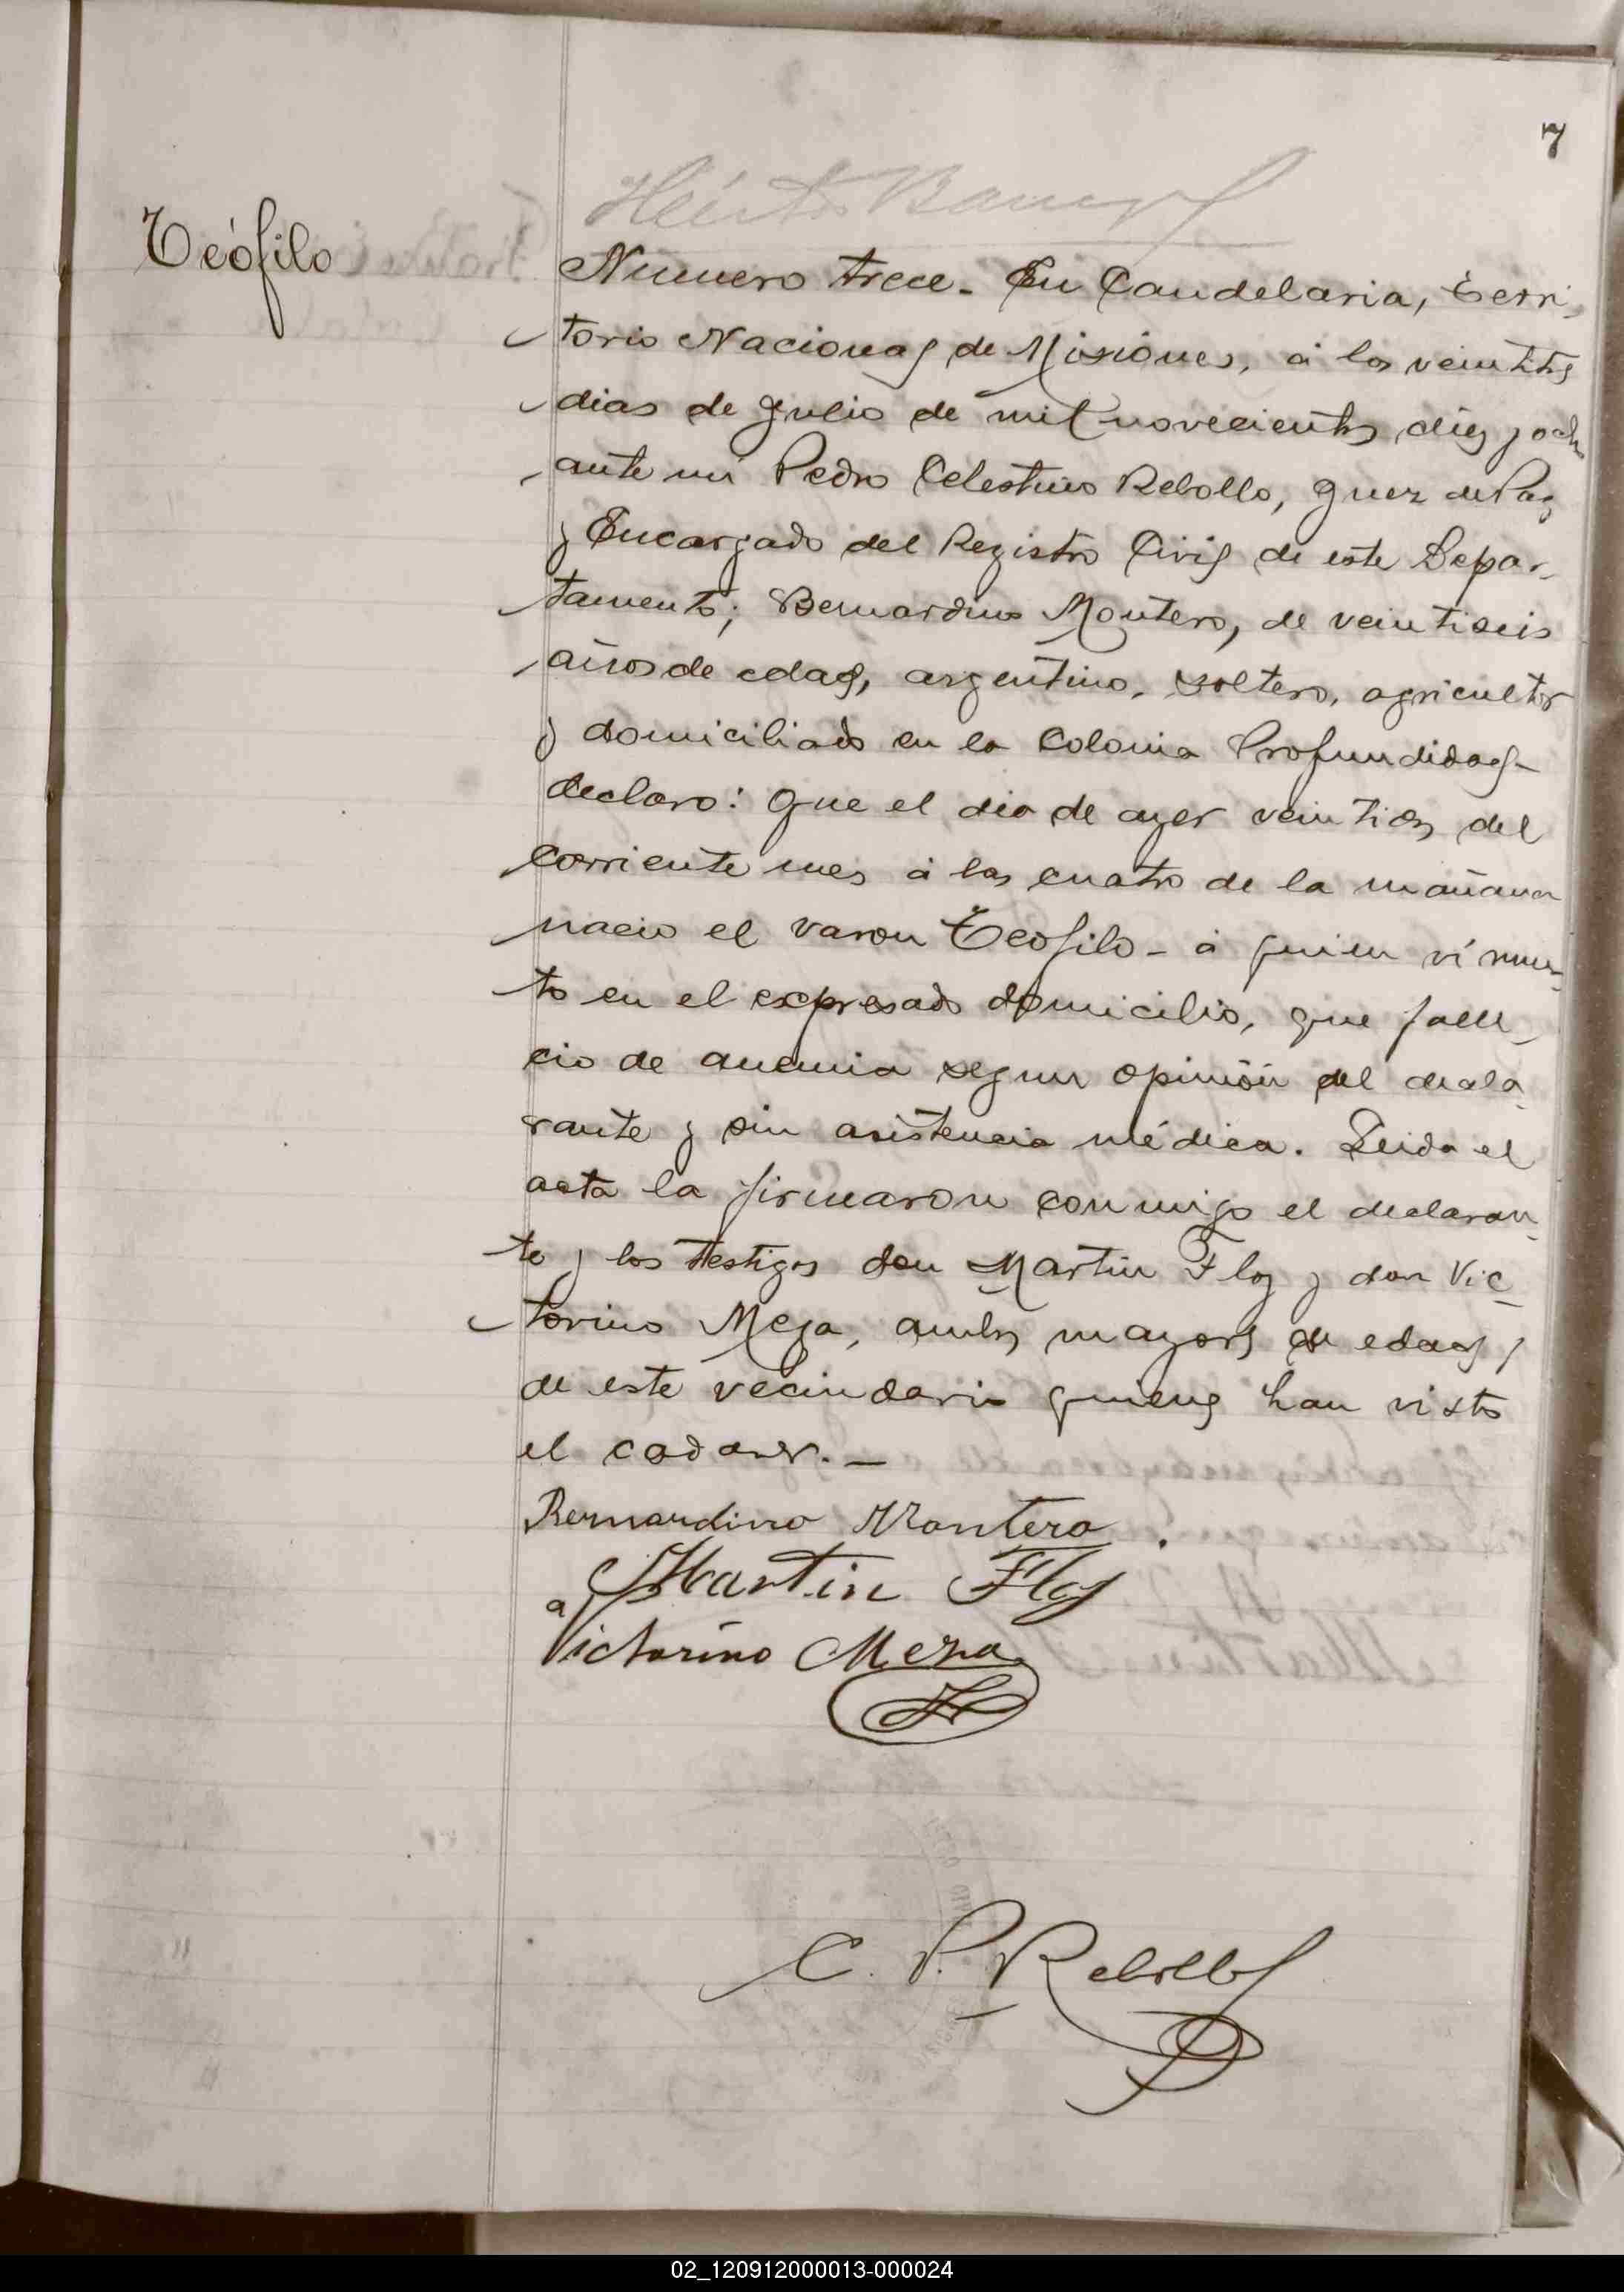 7
Teófilo
Número trece. En Candelaria, Terri-
torio Nacional de Misiones, á los veintitres
dias de Julio de mil novecientos diez y ocho
ante mi Pedro Celestino Rebollo, Juez de Paz
y Encargado del Registro Civil de este Depar-
tamento; Bernardino Montero, de veintiseis
años de edad, argentino, soltero, agricultor
y domiciliado en la Colonia Profundidad-
declaro: Que el dia de ayer veintidos del
corriente mes á las cuatro de la mañana
nacio el varon Teofilo - á quien ví muer-
to en el expresado domicilio, que falle-
cio de anemia segun opinión del decla-
rante y sin asistencia médica. Leida el
acta la firmaron conmigo el declaran-
te y los testigos don Martin Floy y don Vic-
torino Meza, ambos mayores de edad y
de este vecindario quienes han visto
el cadaver. -
Bernardino Montero.
Martin Floy
Victorino Meza
C. P. Rebollo
02_120912000013-000024